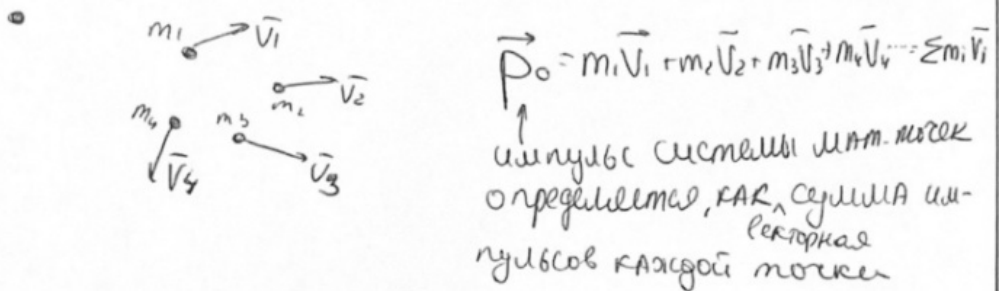 m₁ V̄₁
m₂ V̄₂
m₄ m₃
V̄₄ V̄₃
P⃗₀ = m₁V⃗₁ + m₂V̄₂ + m₃V̄₃ + m₄V̄₄ .... = ΣmᵢV̄ᵢ
импульс системы мат. точек
определяется, как ^ сумма им-
векторная
пульсов каждой точки